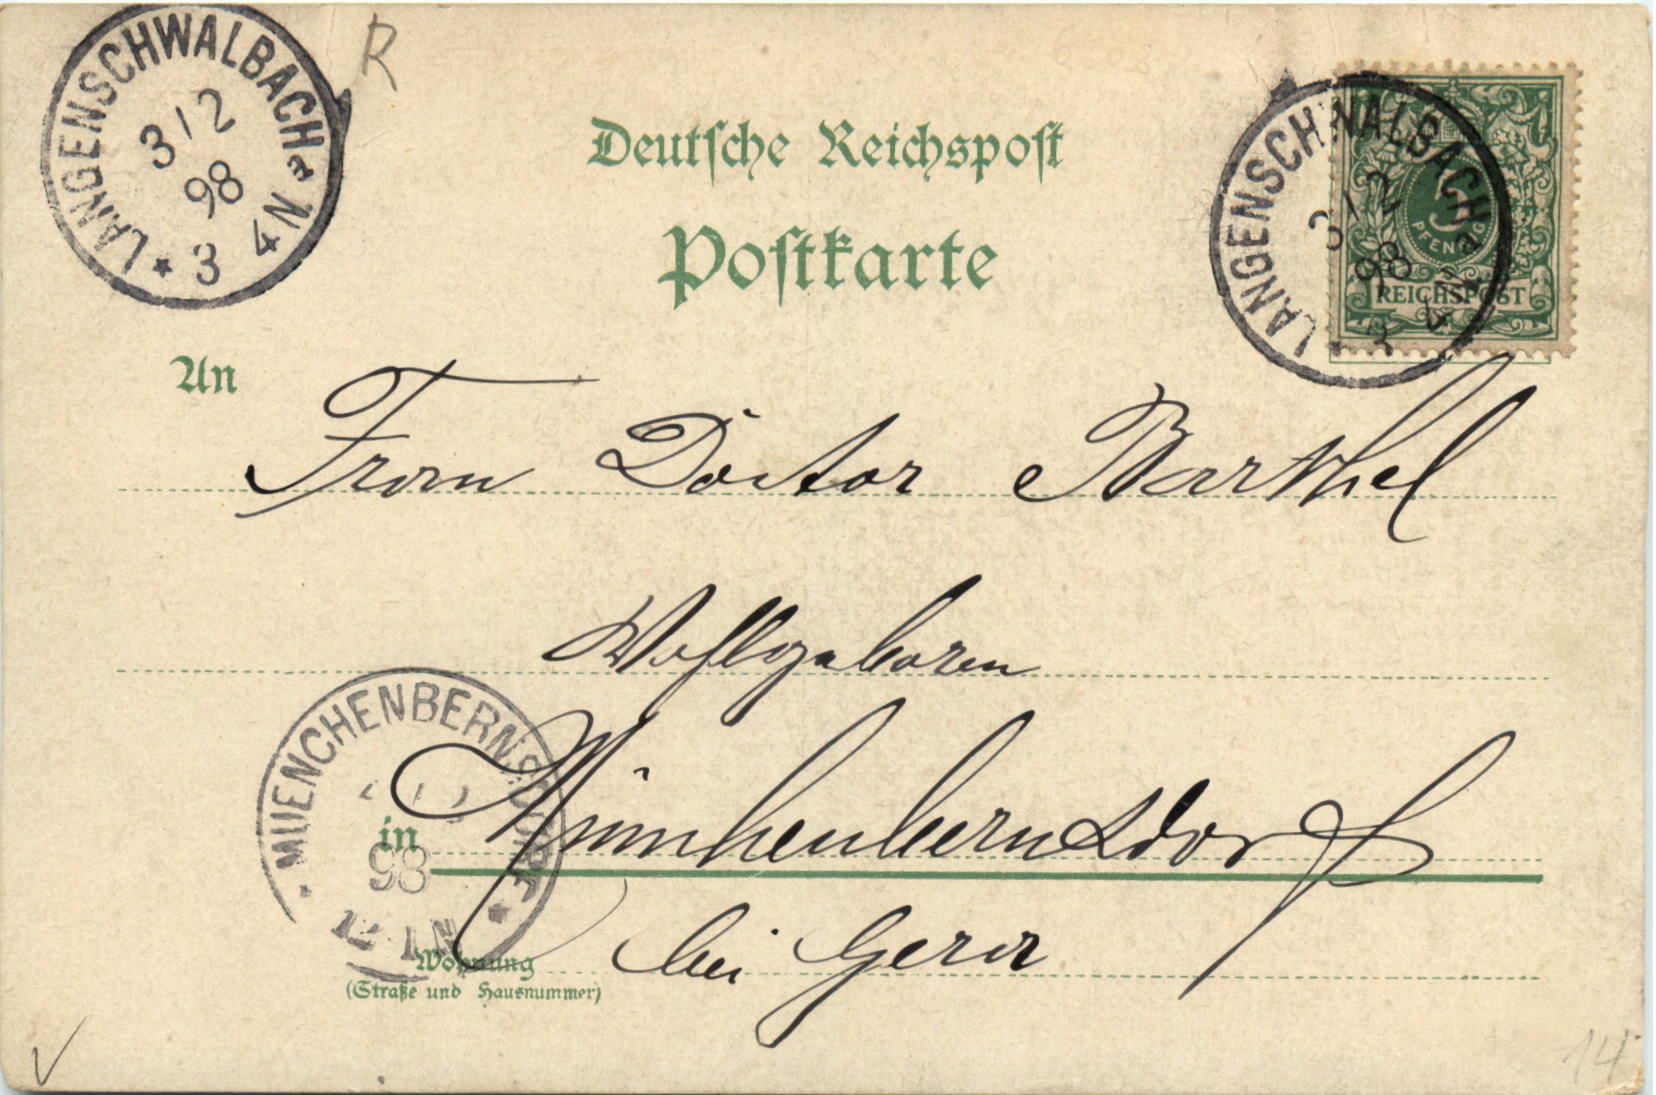 LANGENSCHWALBACH a
3/2
98
3-4N
*
R
Deutsche Reichspost
Postkarte
LANGENSCHWALBACH a
3/2
98
5
PFENNIG
REICHSPOST
An
Frau Doctor Barthel
Wohlgeboren
MUENCHENBERNSDORF
98
12-1N
*
in Münchenbernsdorf
Wohnung
(Straße und Hausnummer)
bei Gera
14